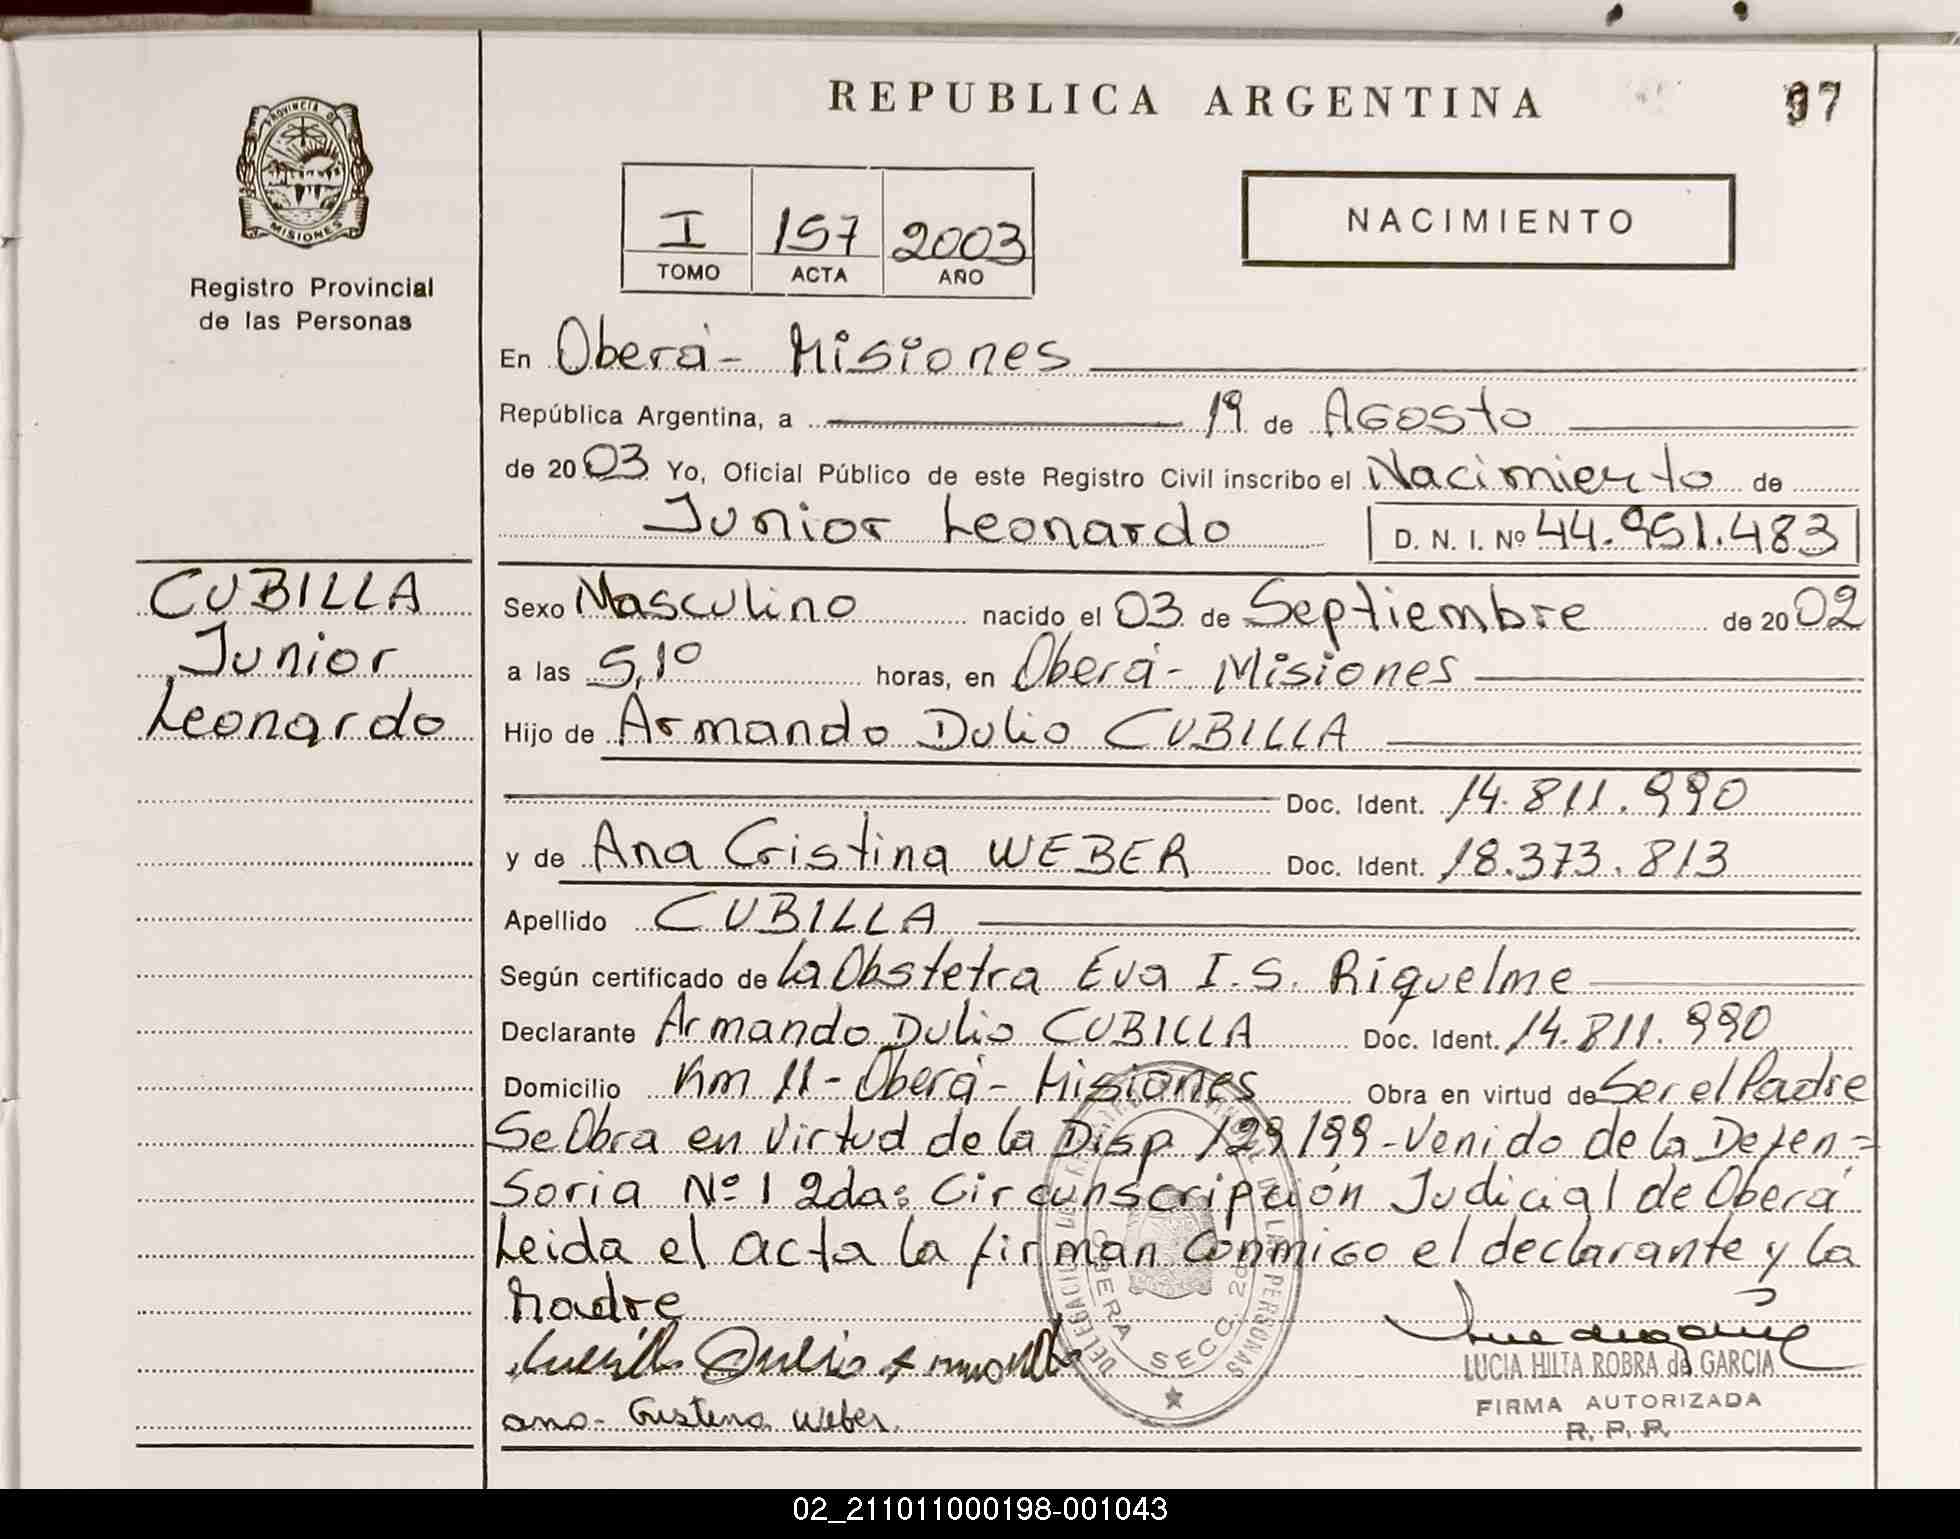 REPUBLICA ARGENTINA
97
PROVINCIA DE
MISIONES
Registro Provincial
de las Personas
I 157 2003
TOMO ACTA AÑO
NACIMIENTO
En Oberá- Misiones
República Argentina, a 19 de Agosto
de 2003 Yo, Oficial Público de este Registro Civil inscribo el Nacimiento de
Junior Leonardo D. N. I. Nº 44.951.483
CUBILLA
Junior
Leonardo
Sexo Masculino nacido el 03 de Septiembre de 2002
a las 5,10 horas, en Oberá- Misiones
Hijo de Armando Dulio CUBILLA
Doc. Ident. 14.811.990
y de Ana Cristina WEBER Doc. Ident. 18.373.813
Apellido CUBILLA
Según certificado de la Obstetra Eva I. S. Riquelme
Declarante Armando Dulio CUBILLA Doc. Ident. 14.811.990
Domicilio Km 11- Oberá- Misiones Obra en virtud de Ser el Padre
Se Obra en Virtud de la Disp 129/99-Venido de la Defen-
soria Nº 1 2da: Circunscripción Judicial de Oberá
Leida el acta la firman Conmigo el declarante y la
Madre
Cubilla Dulio Armando
ana- Cristina Weber.
OBERA SECC. 2ª
LUCIA HILTA ROBRA de GARCIA
FIRMA AUTORIZADA
R. P. P.
02_211011000198-001043